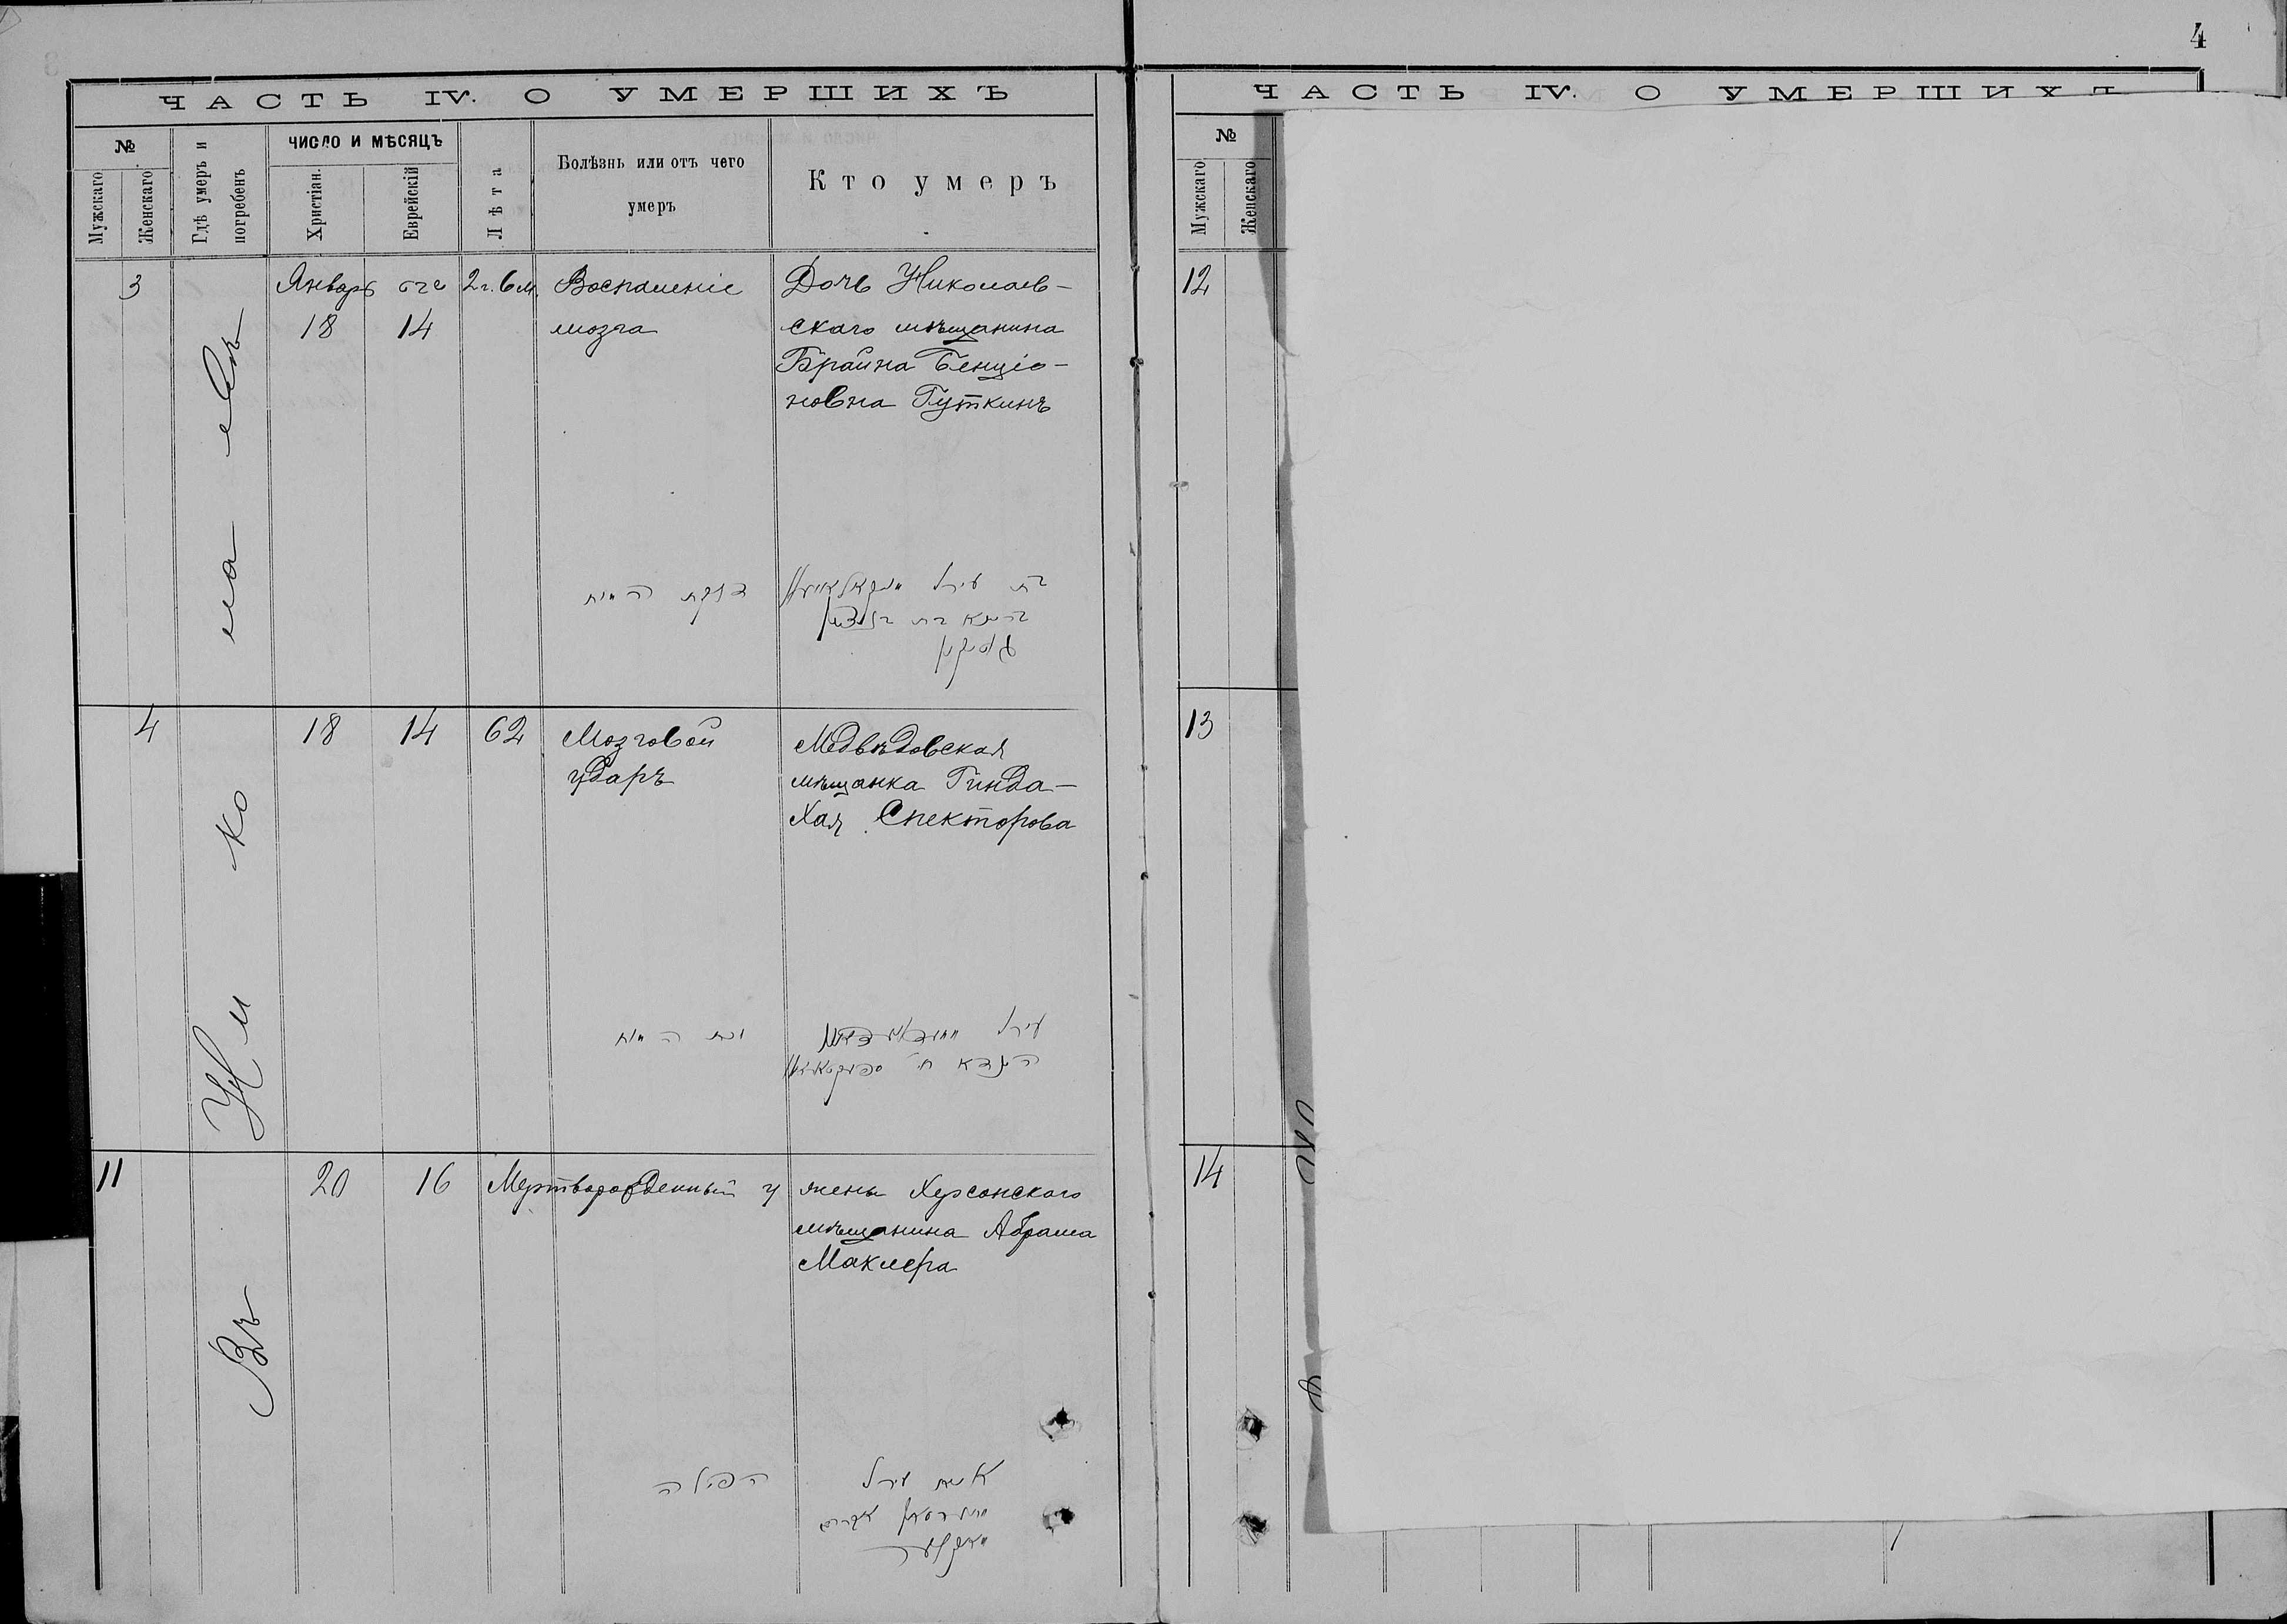 4
ЧАСТЬ IV. О УМЕРШИХЪ
№
Мужскаго
Женскаго
Гдѣ умеръ и погребенъ
ЧИСЛО И МѢСЯЦЪ
Христіан.
Еврейскій
Лѣта
Болѣзнь или отъ чего
умеръ
Кто умеръ
Въ Ни ко ла евѣ
3
Январь
18
14
2 г. 6 м.
Воспаленіе
мозга
Дочь Николаев-
скаго мѣщанина
Брайна Бенціо-
новна Гуткинъ
4
18
14
62
Мозговой
ударъ
Медвѣдовская
мѣщанка Гинда-
Хая Спекторова
11
20
16
Мертворожденный у
жены Херсонскаго
мѣщанина Абрама
Маклера
הפילה
אשת עירני
ЧАСТЬ IV. О УМЕРШИХ
№
Мужскаго
Женскаго
12
13
14